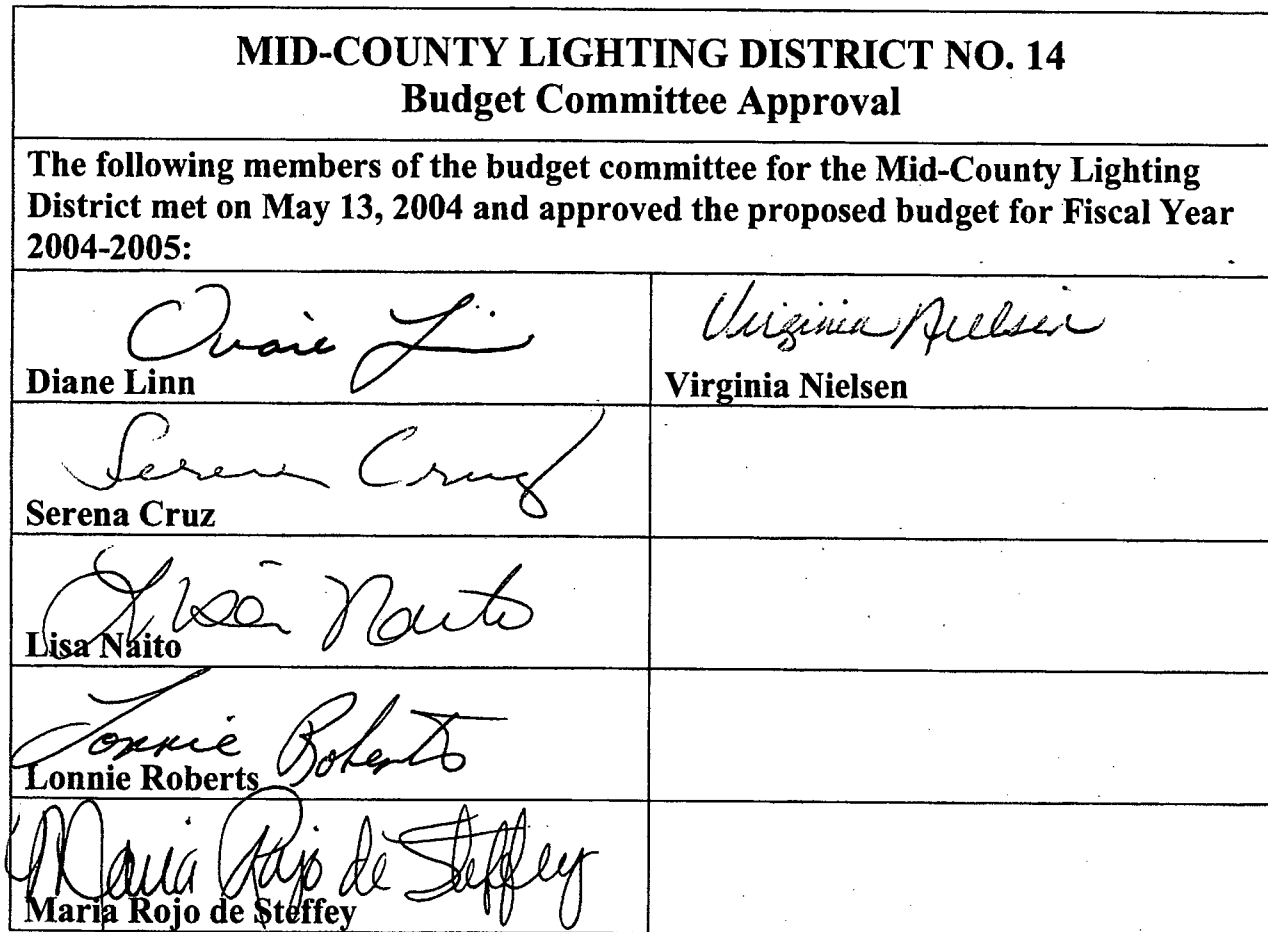 MID-COUNTY LIGHTING DISTRICT NO. 14
Budget Committee Approval
The following members of the budget committee for the Mid-County Lighting
District met on May 13, 2004 and approved the proposed budget for Fiscal Year
2004-2005:
Diane Linn
Diane Linn
Virginia Nielsen
Virginia Nielsen
Serena Cruz
Serena Cruz
Lisa Naito
Lisa Naito
Lonnie Roberts
Lonnie Roberts
Maria Rojo de Steffey
Maria Rojo de Steffey